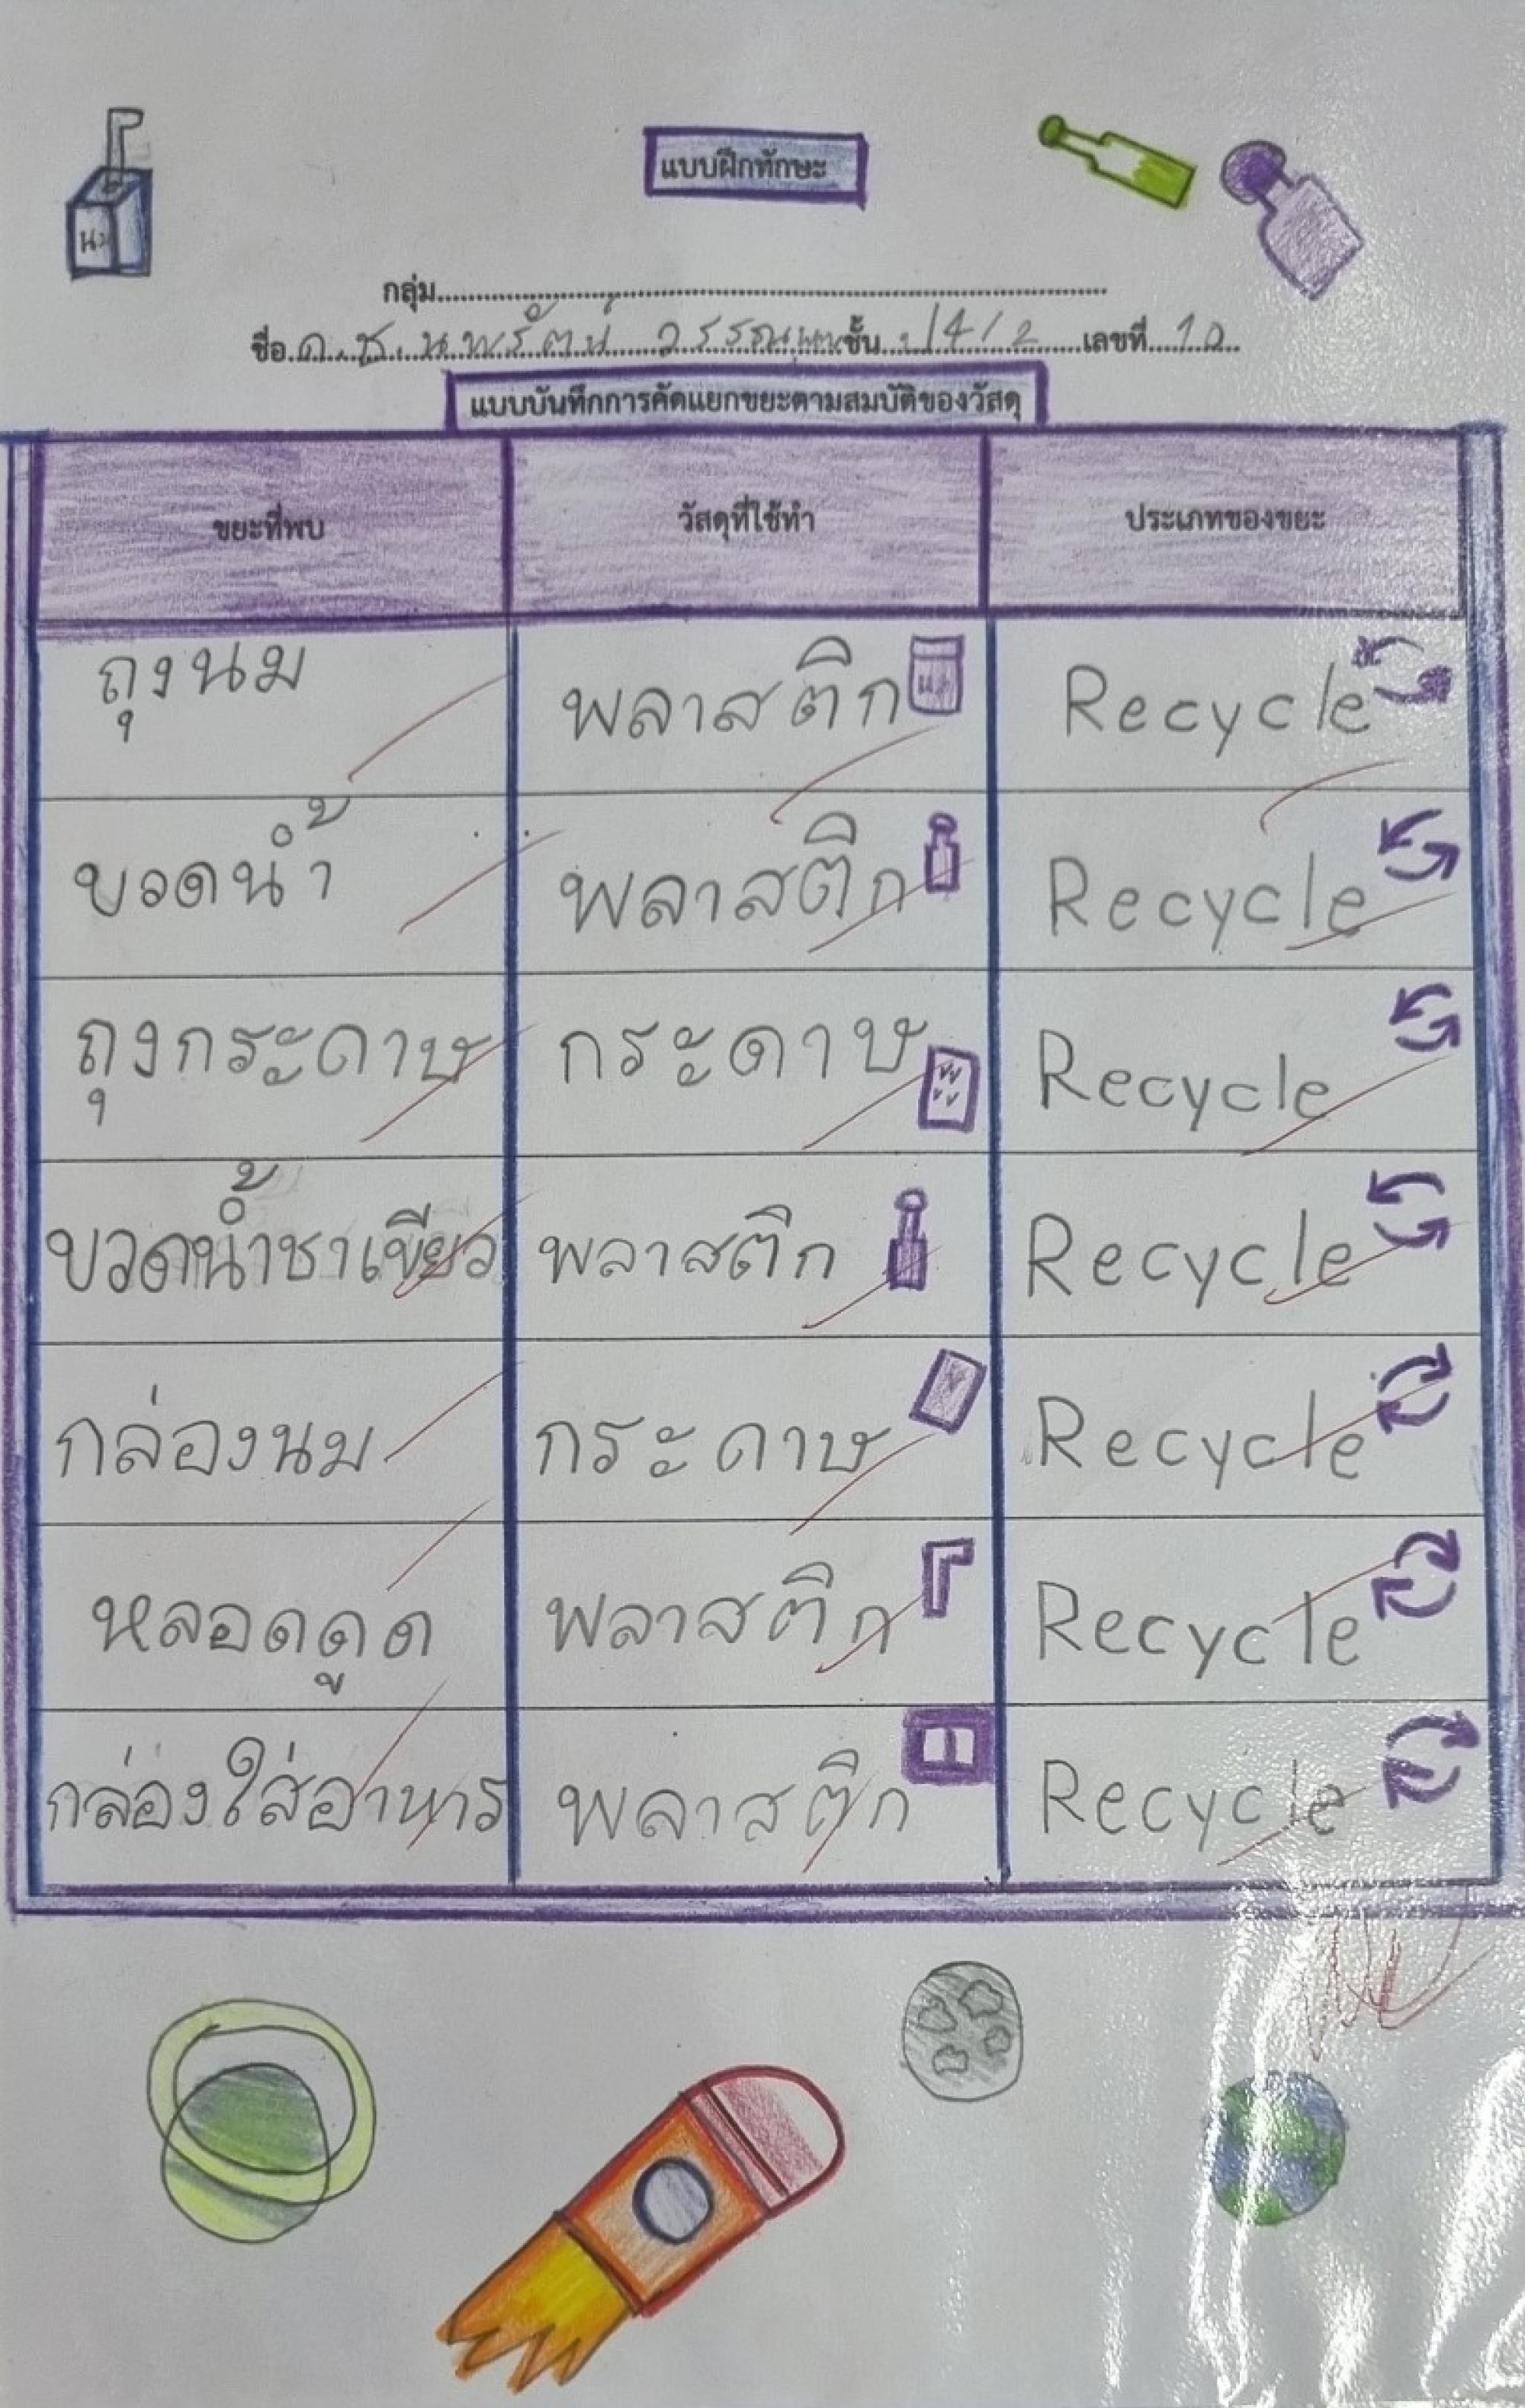 นม
แบบฝึกทักษะ
กลุ่ม
ชื่อ ด.ช. นพรัตน์ ชั้น ป4/2 เลขที่ 10
แบบบันทึกการคัดแยกขยะตามสมบัติของวัสดุ
ขยะที่พบ วัสดุที่ใช้ทำ ประเภทของขยะ
ถุงนม พลาสติก นม Recycle
ขวดน้ำ พลาสติก Recycle
ถุงกระดาษ กระดาษ Recycle
ขวดน้ำชาเขียว พลาสติก Recycle
กล่องนม กระดาษ Recycle
หลอดดูด พลาสติก Recycle
กล่องใส่อาหาร พลาสติก Recycle